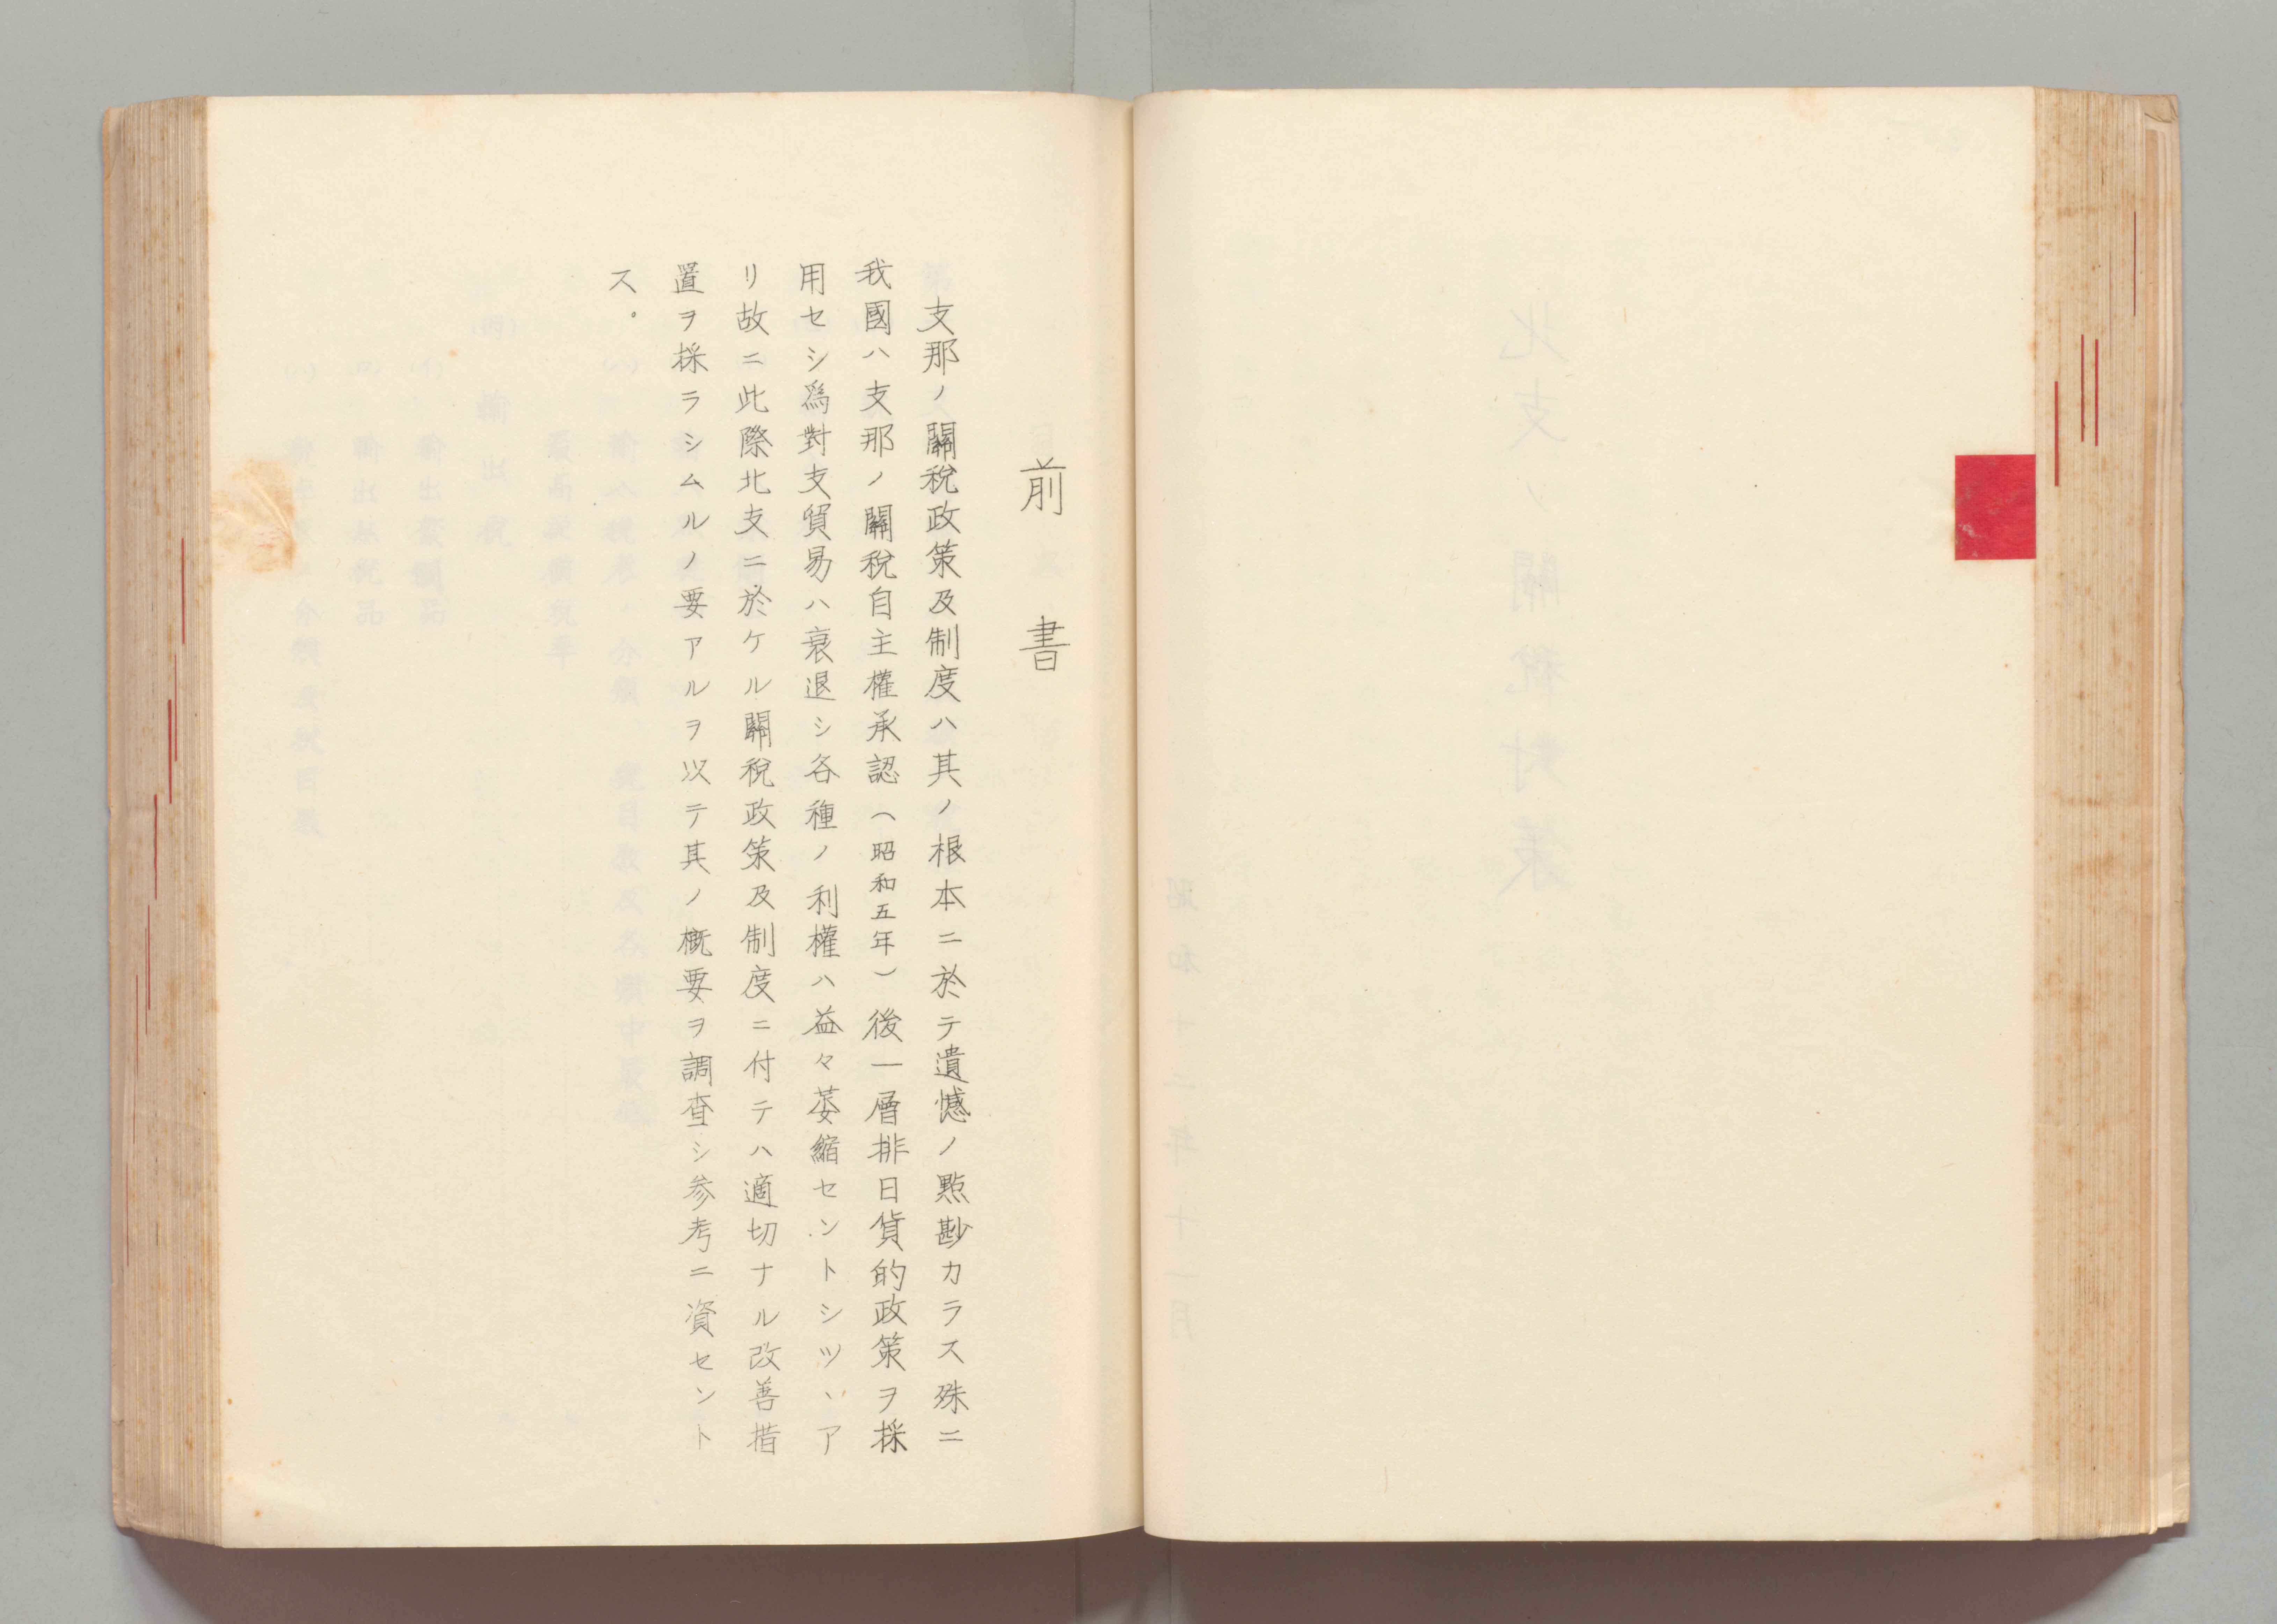 前書
支那ノ關稅政策及制度ハ其ノ根本ニ於テ遺憾ノ點尠カラス殊ニ
我國ハ支那ノ關稅自主權承認（昭和五年）後一層排日貨的政策ヲ採
用セシ爲對支貿易ハ衰退シ各種ノ利權ハ益々萎縮セントシツヽア
リ故ニ此際北支ニ於ケル關稅政策及制度ニ付テハ適切ナル改善措
置ヲ採ラシムルノ要アルヲ以テ其ノ概要ヲ調査シ參考ニ資セント
ス。